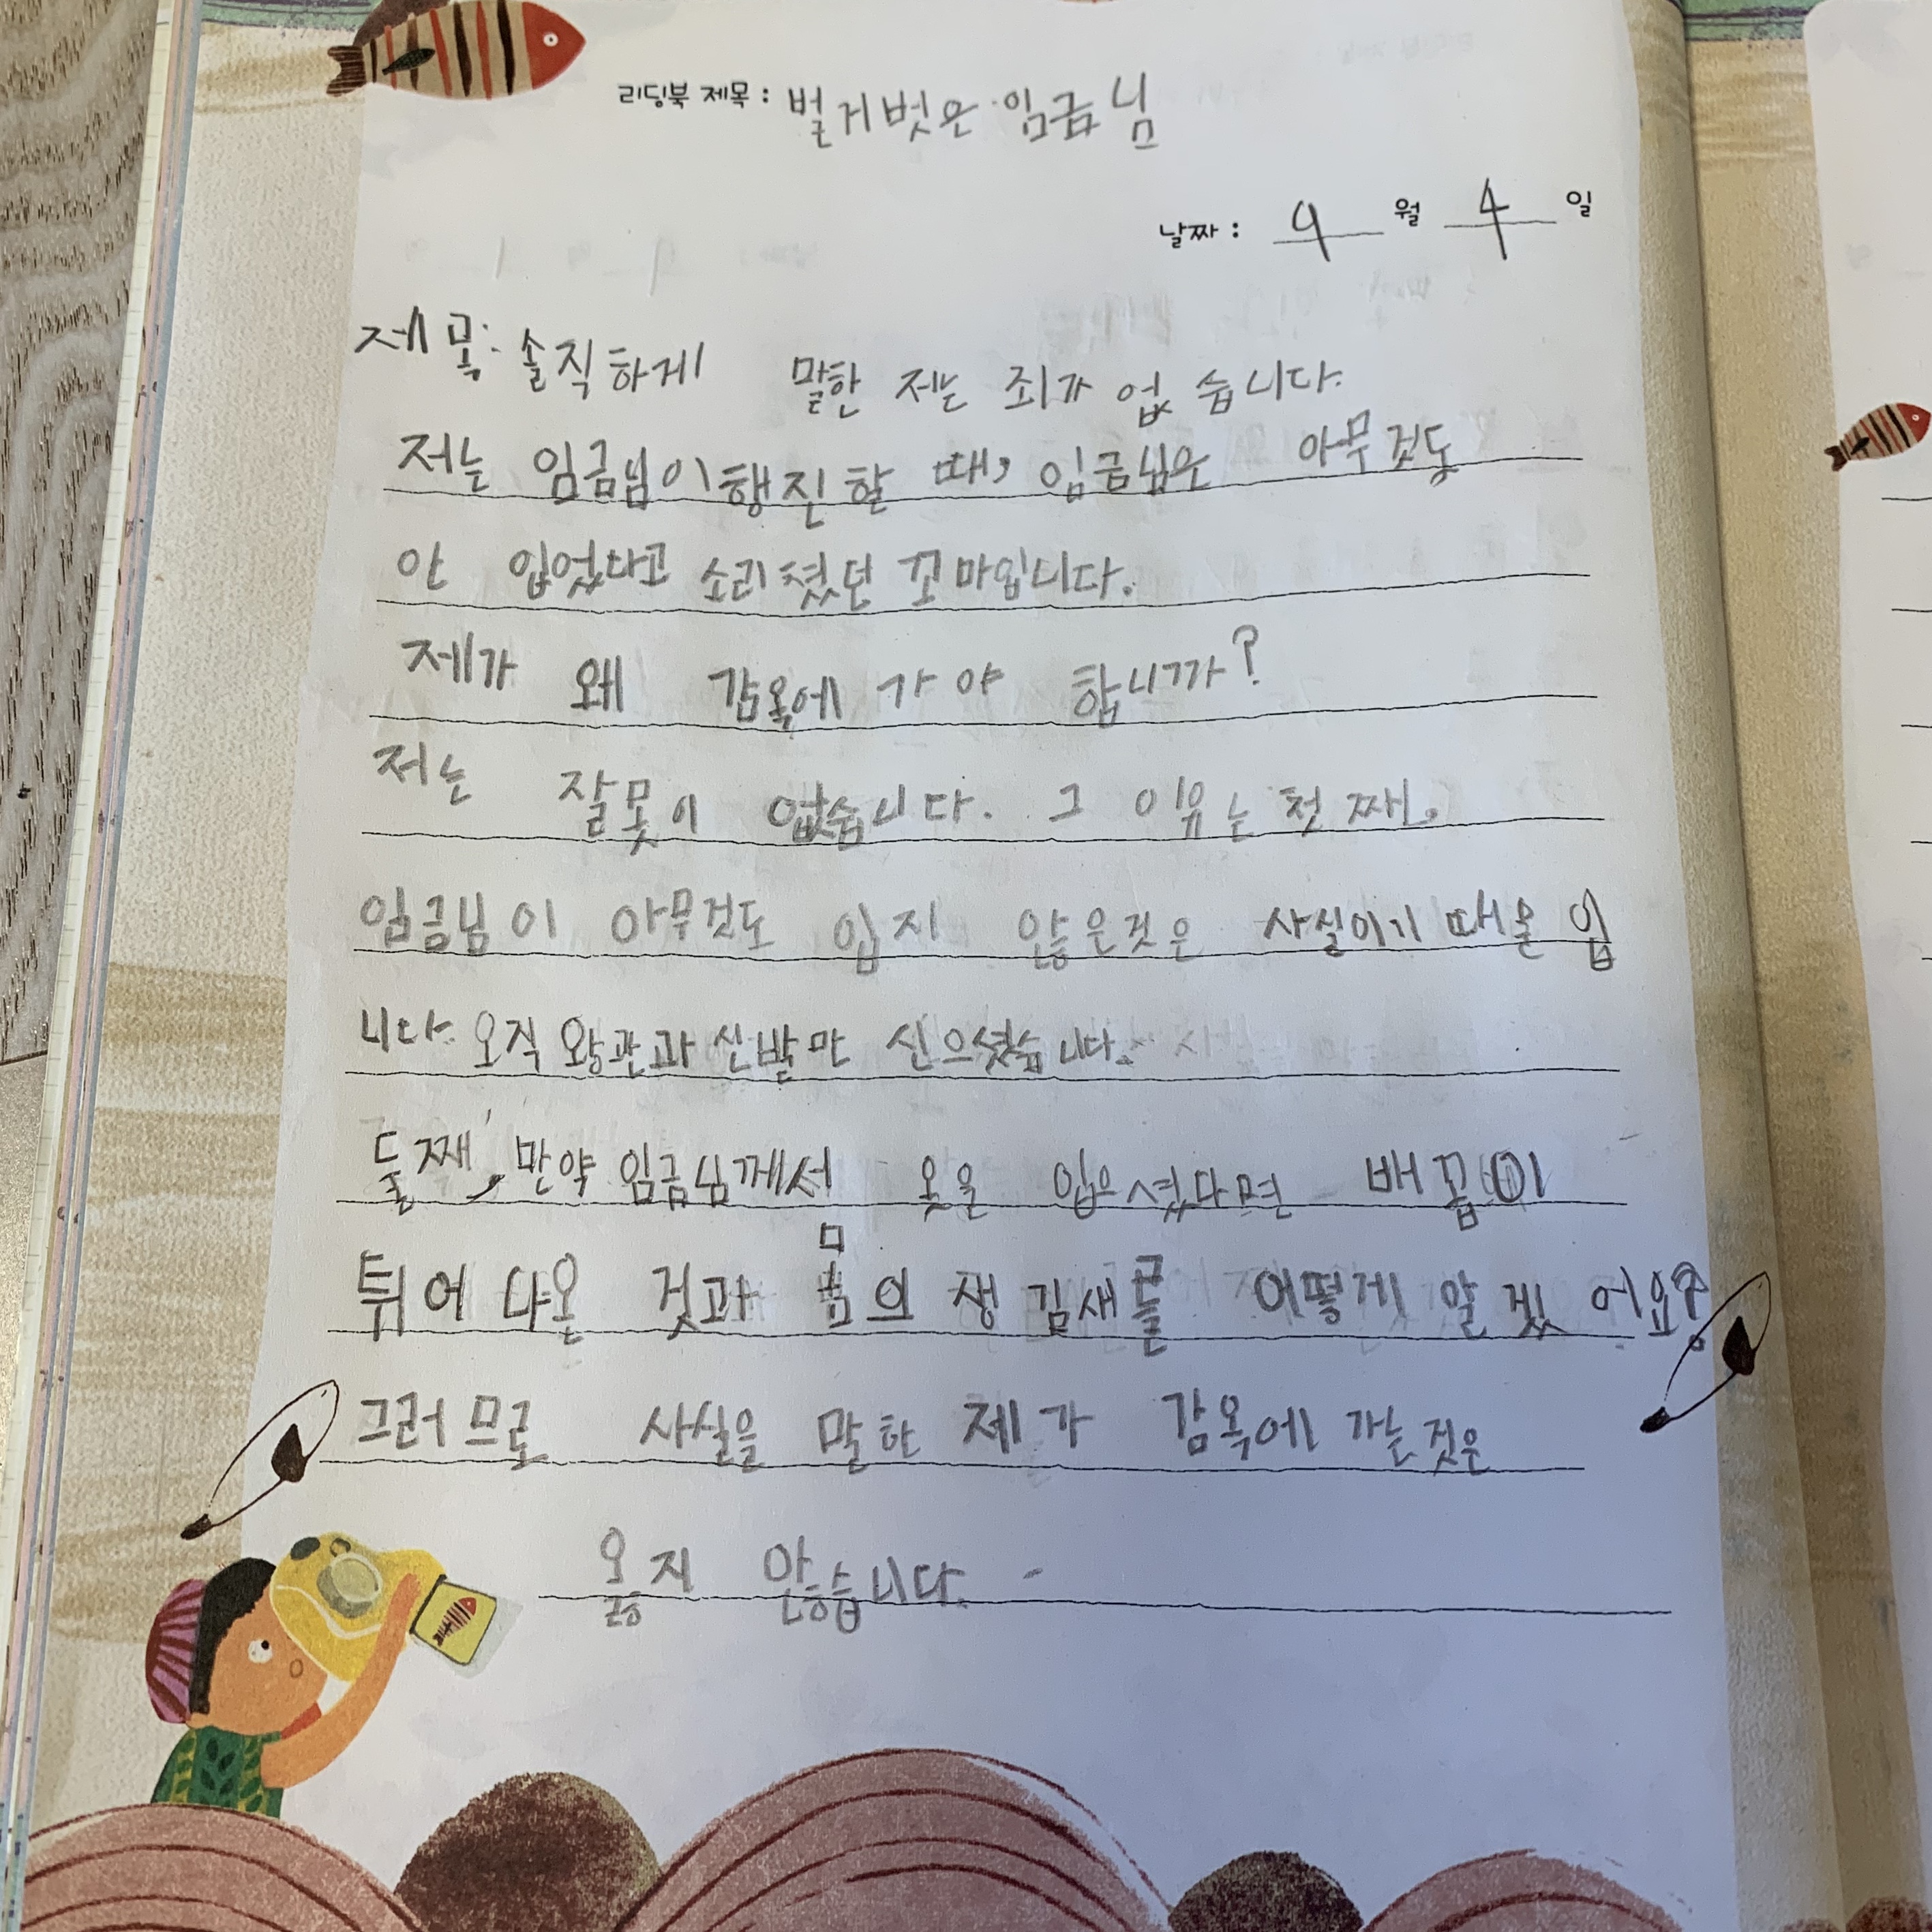 리딩북 제목 : 벌거벗은 임금님
날짜 : 9 월 4 일
제목: 솔직하게 말한 저는 죄가 없습니다.
저는 임금님이 행진할 때, 임금님은 아무것도
안 입었다고 소리쳤던 꼬마입니다.
제가 왜 감옥에 가야 합니까?
저는 잘못이 없습니다. 그 이유는 첫째,
임금님이 아무것도 입지 않은것은 사실이기 때문입
니다. 오직 왕관과 신발만 신으셨습니다.
둘째, 만약 임금님께서 옷을 입으셨다면 배꼽이
튀어 나온 것과 몸의 생김새를 어떻게 알겠어요?
그러므로 사실을 말한 제가 감옥에 가는것은
옳지 않습니다.